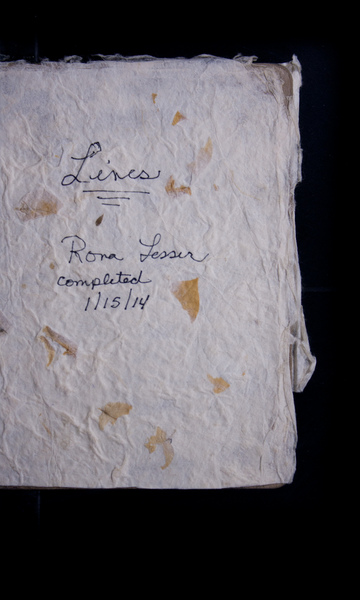 Lines
Rona Lesser
completed
1/15/14